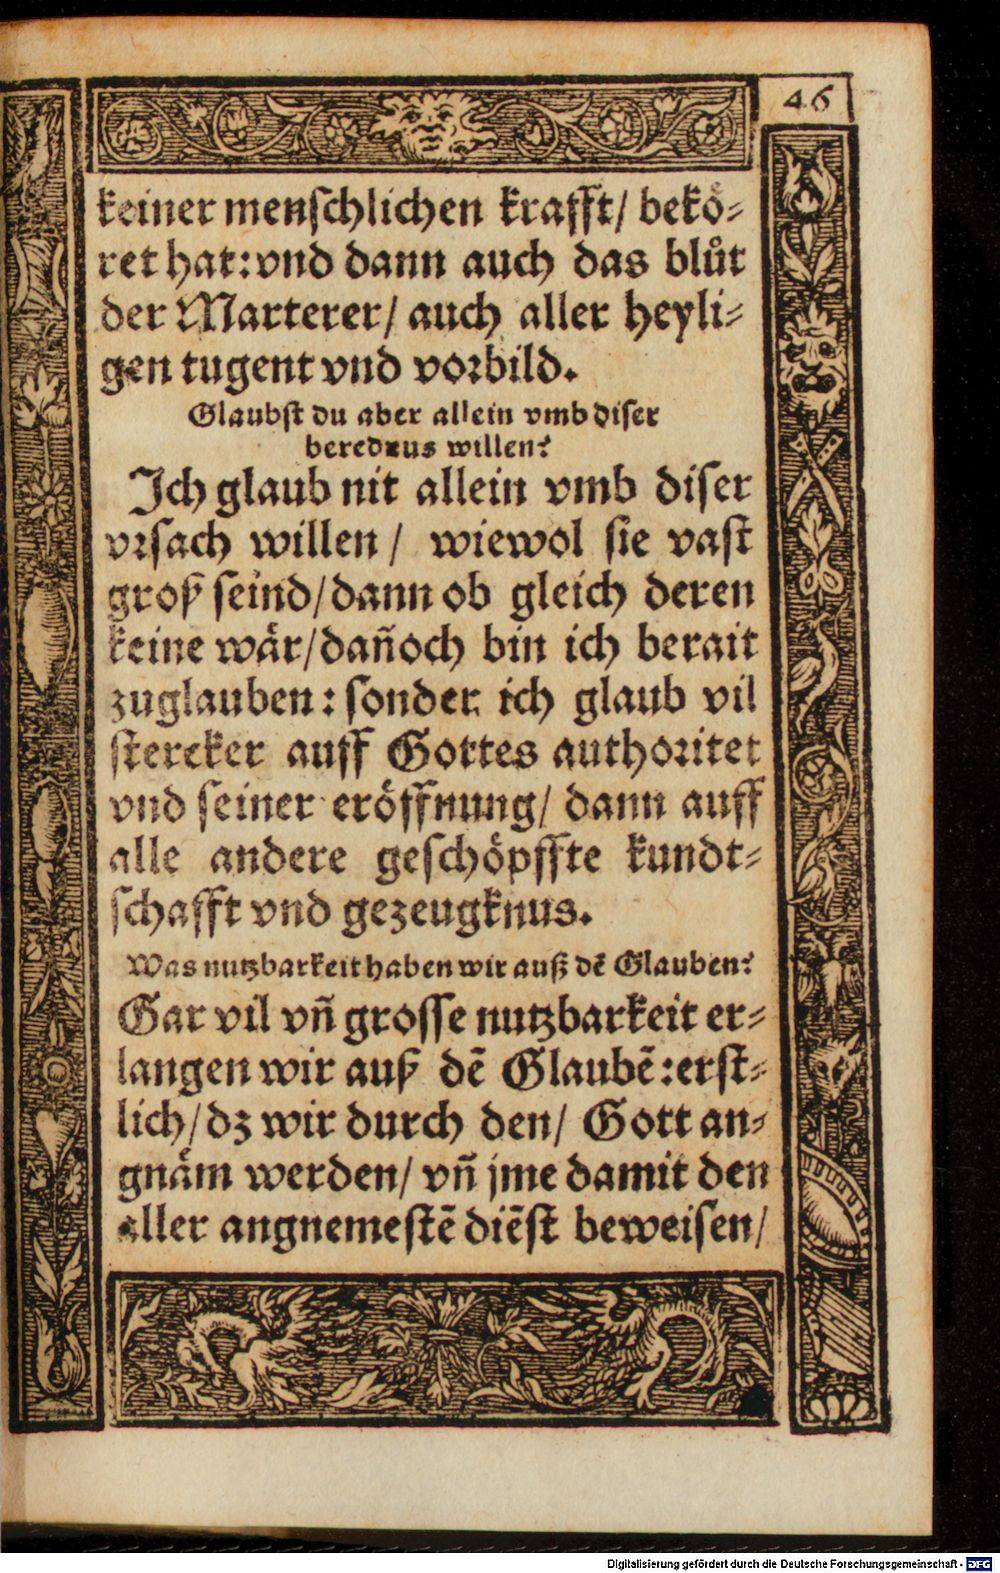 46
keiner menschlichen krafft/ bekö-
ret hat: vnd dann auch das blůt
der Marterer/ auch aller heyli-
gen tugent vnd vorbild.
Glaubst du aber allein vmb diser
willen?
Ich glaub nit allein vmb diser
vrsach willen/ wiewol sie vast
groß seind/ dann ob gleich deren
keine wår/ dañoch bin ich berait
zuglauben: sonder ich glaub vil
stercker auff Gottes authoritet
vnd seiner eröffnung/ dann auff
alle andere geschöpffte kundt-
schafft vnd gezeugknus.
Was nutzbarkeit haben wir auß dē Glauben?
Gar vil vñ grosse nutzbarkeit er-
langen wir auß dē Glaubē: erst-
lich/ dz wir durch den/ Gott an-
gnåm werden/ vñ jme damit den
aller angnemestē diēst beweisen/
Digitalisierung gefördert durch die Deutsche Forschungsgemeinschaft - DFG